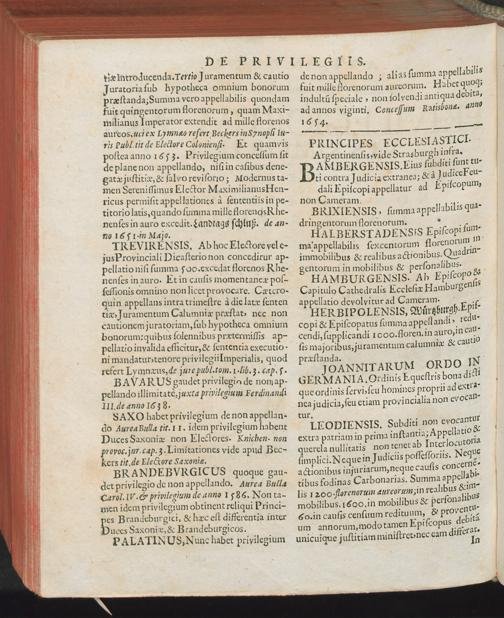 DE PRIVILEGIIS.
tiæ introducenda. Tertio Juramentum & cautio
Juratoria sub hypotheca omnium bonorum
præstanda; Summa vero appellabilis quondam
fuit quingentorum florenorum, quam Maxi-
milianus Imperator extendit ad mille florenos
aureos. uci ex Lymnæo refert Beckers in Synopsi Iu-
ris Publ. tit de Electore Coloniensi. Et quamvis
postea anno 1653. Privilegium concessum sit
de plane non appellando, nisi in casibus dene-
gatæ justitiæ, & salvo revisorio; Modernus ta-
men Serenissimus Elector Maximilianus Hen-
ricus permisit appellationes à sententiis in pe-
titorio latis, quando summa mille florenos Rhe-
nenses in auro excedit. Landtags schluß. de an-
no 1651 in Majo.
TREVIRENSIS. Ab hoc Electore vel e-
jus Provinciali Dicasterio non conceditur ap-
pellatio nisi summa 500. excedat florenos Rhe-
nenses in auro. Et in causis momentaneæ pos-
sessionis omnino non licet provocare. Cætero-
quin appellans intra trimestre à die latæ senten-
tiæ, Juramentum Calumniæ præstat, nec non
cautionem juratoriam, sub hypotheca omnium
bonorum: quibus solennibus prætermissis ap-
pellatio invalida efficitur, & sententia executio-
ni mandatur, tenore privilegii Imperialis, quod
refert Lymnæus, de jure publ. tom. 1. lib. 3. cap. 5.
BAVARUS gaudet privilegio de non ap-
pellando illimitatè, juxta privilegium Ferdinandi
III. de anno 1638.
SAXO habet privilegium de non appellan-
do Aurea Bulla tit. 11. idem privilegium habent
Duces Saxoniæ non Electores. Knichen. non
provoc. jur. cap. 3. Limitationes vide apud Bec-
kers tit. de Electore Saxoniæ.
BRANDEBURGICUS quoque gau-
det privilegio de non appellando. Aurea Bulla
Carol. IV. & privilegium de anno 1586. Non ta-
men idem privilegium obtinent reliqui Princi-
pes Brandeburgici, & hæc est differentia inter
Duces Saxoniæ, & Brandeburgicos.
PALATINUS, Nunc habet privilegium
de non appellando; alias summa appellabilis
fuit mille florenorum aureorum. Habet quoq;
indultũ speciale, non solvendi antiqua debita,
ad annos viginti. Concessum Ratisbonæ. anno
1654.
PRINCIPES ECCLESIASTICI.
Argentinensis, vide Strasburgh infra.
BAMBERGENSIS. Eius subditi sunt tu-
ti contra Judicia extranea; & à Judice Feu-
dali Episcopi appellatur ad Episcopum,
non Cameram.
BRIXIENSIS, summa appellabilis qua-
dringentorum florenorum.
HALBERSTADENSIS Episcopi sum-
ma appellabilis sexcentorum florenorum in
immobilibus & realibus actionibus. Quadrin-
gentorum in mobilibus & personalibus.
HAMBURGENSIS. Ab Episcopo &
Capitulo Cathedralis Ecclesiæ Hamburgensis
appellatio devolvitur ad Cameram.
HERBIPOLENSIS, Würtzburgh. Epis-
copi & Episcopatus summa appellandi, redu-
cendi, supplicandi 1000. floren. in auro, in cau-
sis majoribus, juramentum calumniæ & cautio
præstanda.
JOANNITARUM ORDO IN
GERMANIA. Ordinis Equestris bona dicti
que ordinis servi, seu homines proprii ad extra-
nea judicia, seu etiam provincialia non evocan-
tur.
LEODIENSIS. Subditi non evocantur
extra patriam in prima instantia; Appellatio &
querela nullitatis non tenet ab Interlocutoria
simplici. Neque in Judiciis possessoriis. Neque
actionibus injuriarum, neque causis concernē-
tibus sodinas Carbonarias. Summa appellabi-
lis 1200 florenorum aureorum; in realibus & im-
mobilibus. 1600. in mobilibus & personalibus
60. in causis censuum redituum, & proventu-
um annorum, modo tamen Episcopus debitā
unicuique justitiam ministret, nec eam differat.
In